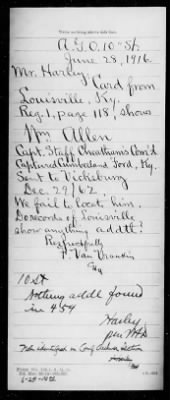 Write nothing above this line.
A.G.O. 10" St.
June 28, 1916.
Mr. Harley:
Card from
Louisville, Ky.
Reg. 1, page 118, shows
Wm Allen
Capt. Staff Cheatham's Com'd
Captured Cumberland Ford, Ky.
Sent to Vicksburg
Dec. 29/62.
We fail to locate him.
Do records of Louisville
show anything addtl?
Respectfully
F. Van Vrankin
10 St
Nothing addl found
in 459
Harley
per
Not identified in Conf. Archives Section
6-28-16